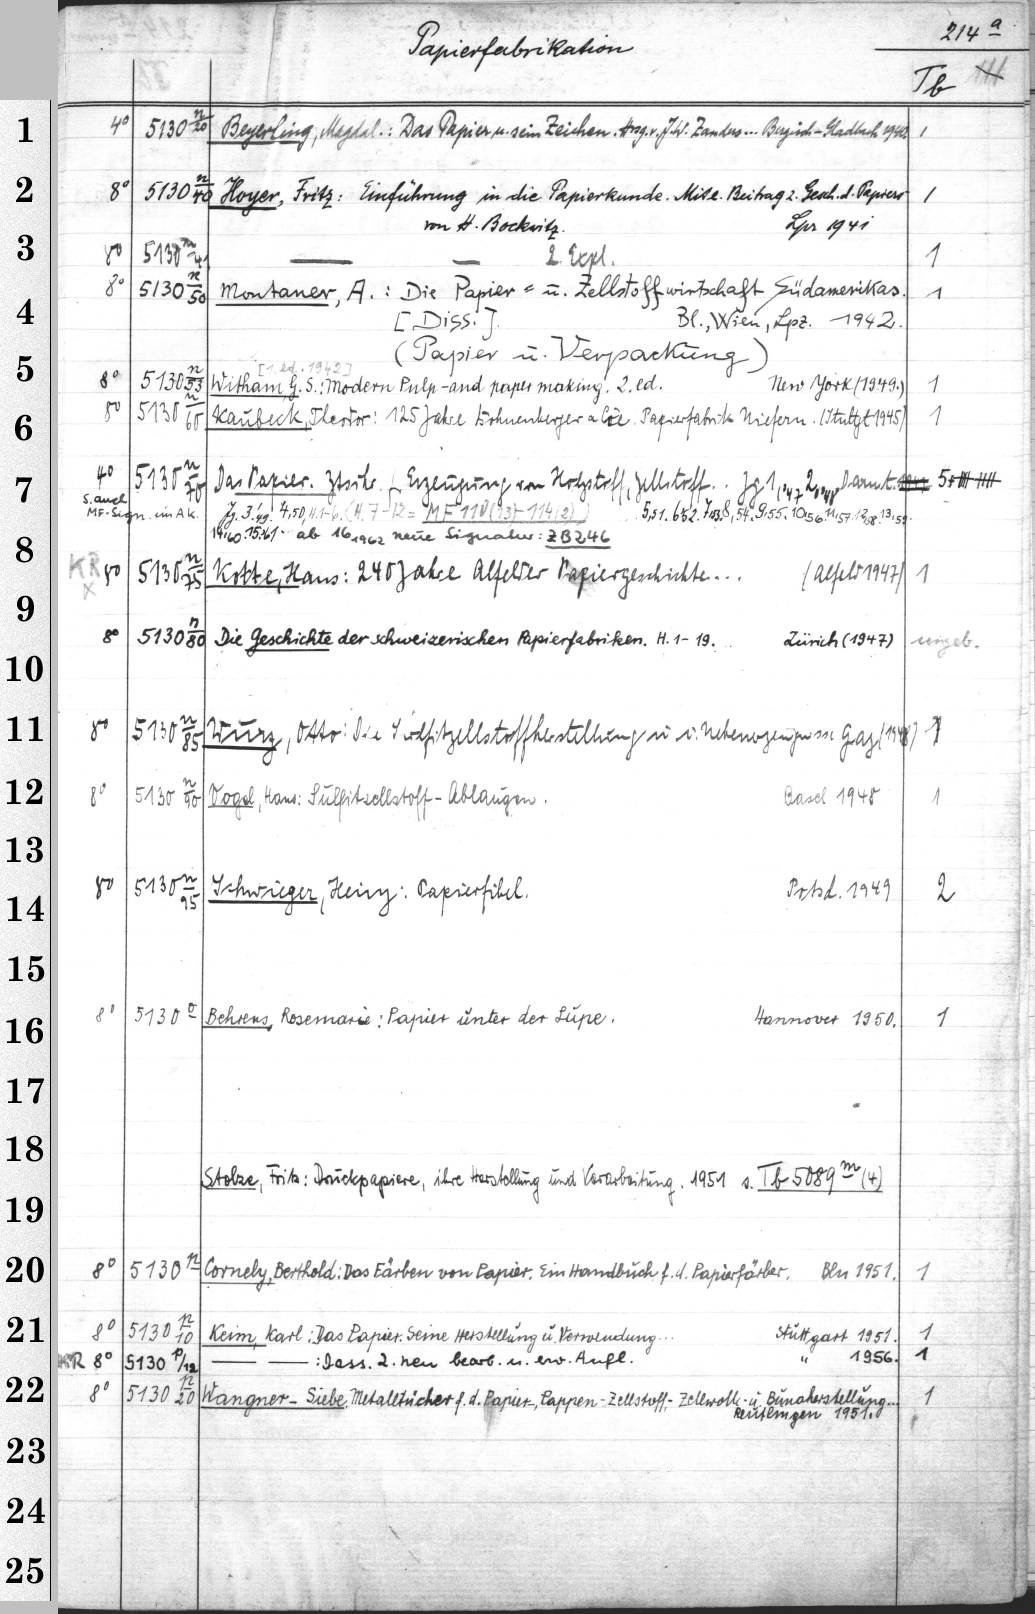 Papierfabrikation
214 a
Tb
1
4° 5130 n/20 Beyerling, Magdal.: Das Papier u. sein Zeichen. Hrsg. v. J. W. Zanders... Bergisch-Gladbach 1942 1
2
8° 5130 n/40 Hoyer, Fritz: Einführung in die Papierkunde. Mit e. Beitrag z. Gesch. d. Papiers 1
von H. Bockwitz. Lpz 1941
3
8° 5130 n/41 — — 2. Expl. 1
8° 5130 n/50 Montaner, A.: Die Papier= u. Zellstoffwirtschaft Südamerikas. 1
4
[Diss.]. Bl., Wien, Lpz. 1942.
(Papier u. Verpackung)
5
[1. ed. 1942]
8° 5130 n/53 Witham, G. S.: Modern Pulp- and paper making. 2. ed. New York (1949.) 1
6
8° 5130 n/60 Kaubeck, Theodor: 125 Jahre Bohnenberger & Cie Papierfabrik Niefern. (Stuttgt 1945) 1
7
4° 5130 n/70 Das Papier. Ztschr. f. Erzeugung von Holzstoff, Zellstoff.. Jg 1,1947 2,1948 Darmst.
s. auch
MF-Sign. im AK. Jg. 3'49. 4.50, H. 1-6. (H. 7-12 = MF 118 (93)-114 (2)) 5,51. 6.52. 7,53. 8,54. 9.55. 10,56. 11,57. 12,58. 13,59.
14,60. 15.61. ab 16,1962 neue Signatur: ZB 246
8
KR x 8° 5130 n/75 Kotte, Hans: 240 Jahre Alfelder Papiergeschichte... (Alfeld 1947) 1
9
8° 5130 n/80 Die Geschichte der schweizerischen Papierfabriken. H. 1-19. Zürich (1947) ungeb.
10
11
8° 5130 n/85 Wurz, Otto: Die Sulfitzellstoffherstellung u. i. Nebenerzeugnisse Graz (1948) 1
12
8° 5130 n/90 Vogel, Hans: Sulfitzellstoff-Ablaugen. Basel 1948 1
13
8° 5130 n/95 Schwieger, Heinz: Papierfibel. Potsd. 1949 2
14
15
8° 5130 o Behrens, Rosemarie: Papier unter der Lupe. Hannover 1950. 1
16
17
18
Stolze, Fritz: Druckpapiere, ihre Herstellung und Verarbeitung. 1951 s. Tb 5089 m (4)
19
20
8° 5130 p Cornely, Berthold: Das Färben von Papier. Ein Handbuch f. d. Papierfärber. Bln 1951. 1
21
8° 5130 p/10 Keim, Karl: Das Papier. Seine Herstellung u. Verwendung... Stuttgart 1951. 1
KR 8° 5130 p/12 — — : Dass. 2. neu bearb. u. erw. Aufl. " 1956. 1
22
8° 5130 p/20 Wangner-Siebe, Metalltücher f. d. Papier-, Pappen-, Zellstoff-, Zellwoll- u. Bunaherstellung... 1
Reutlingen 1951.
23
24
25